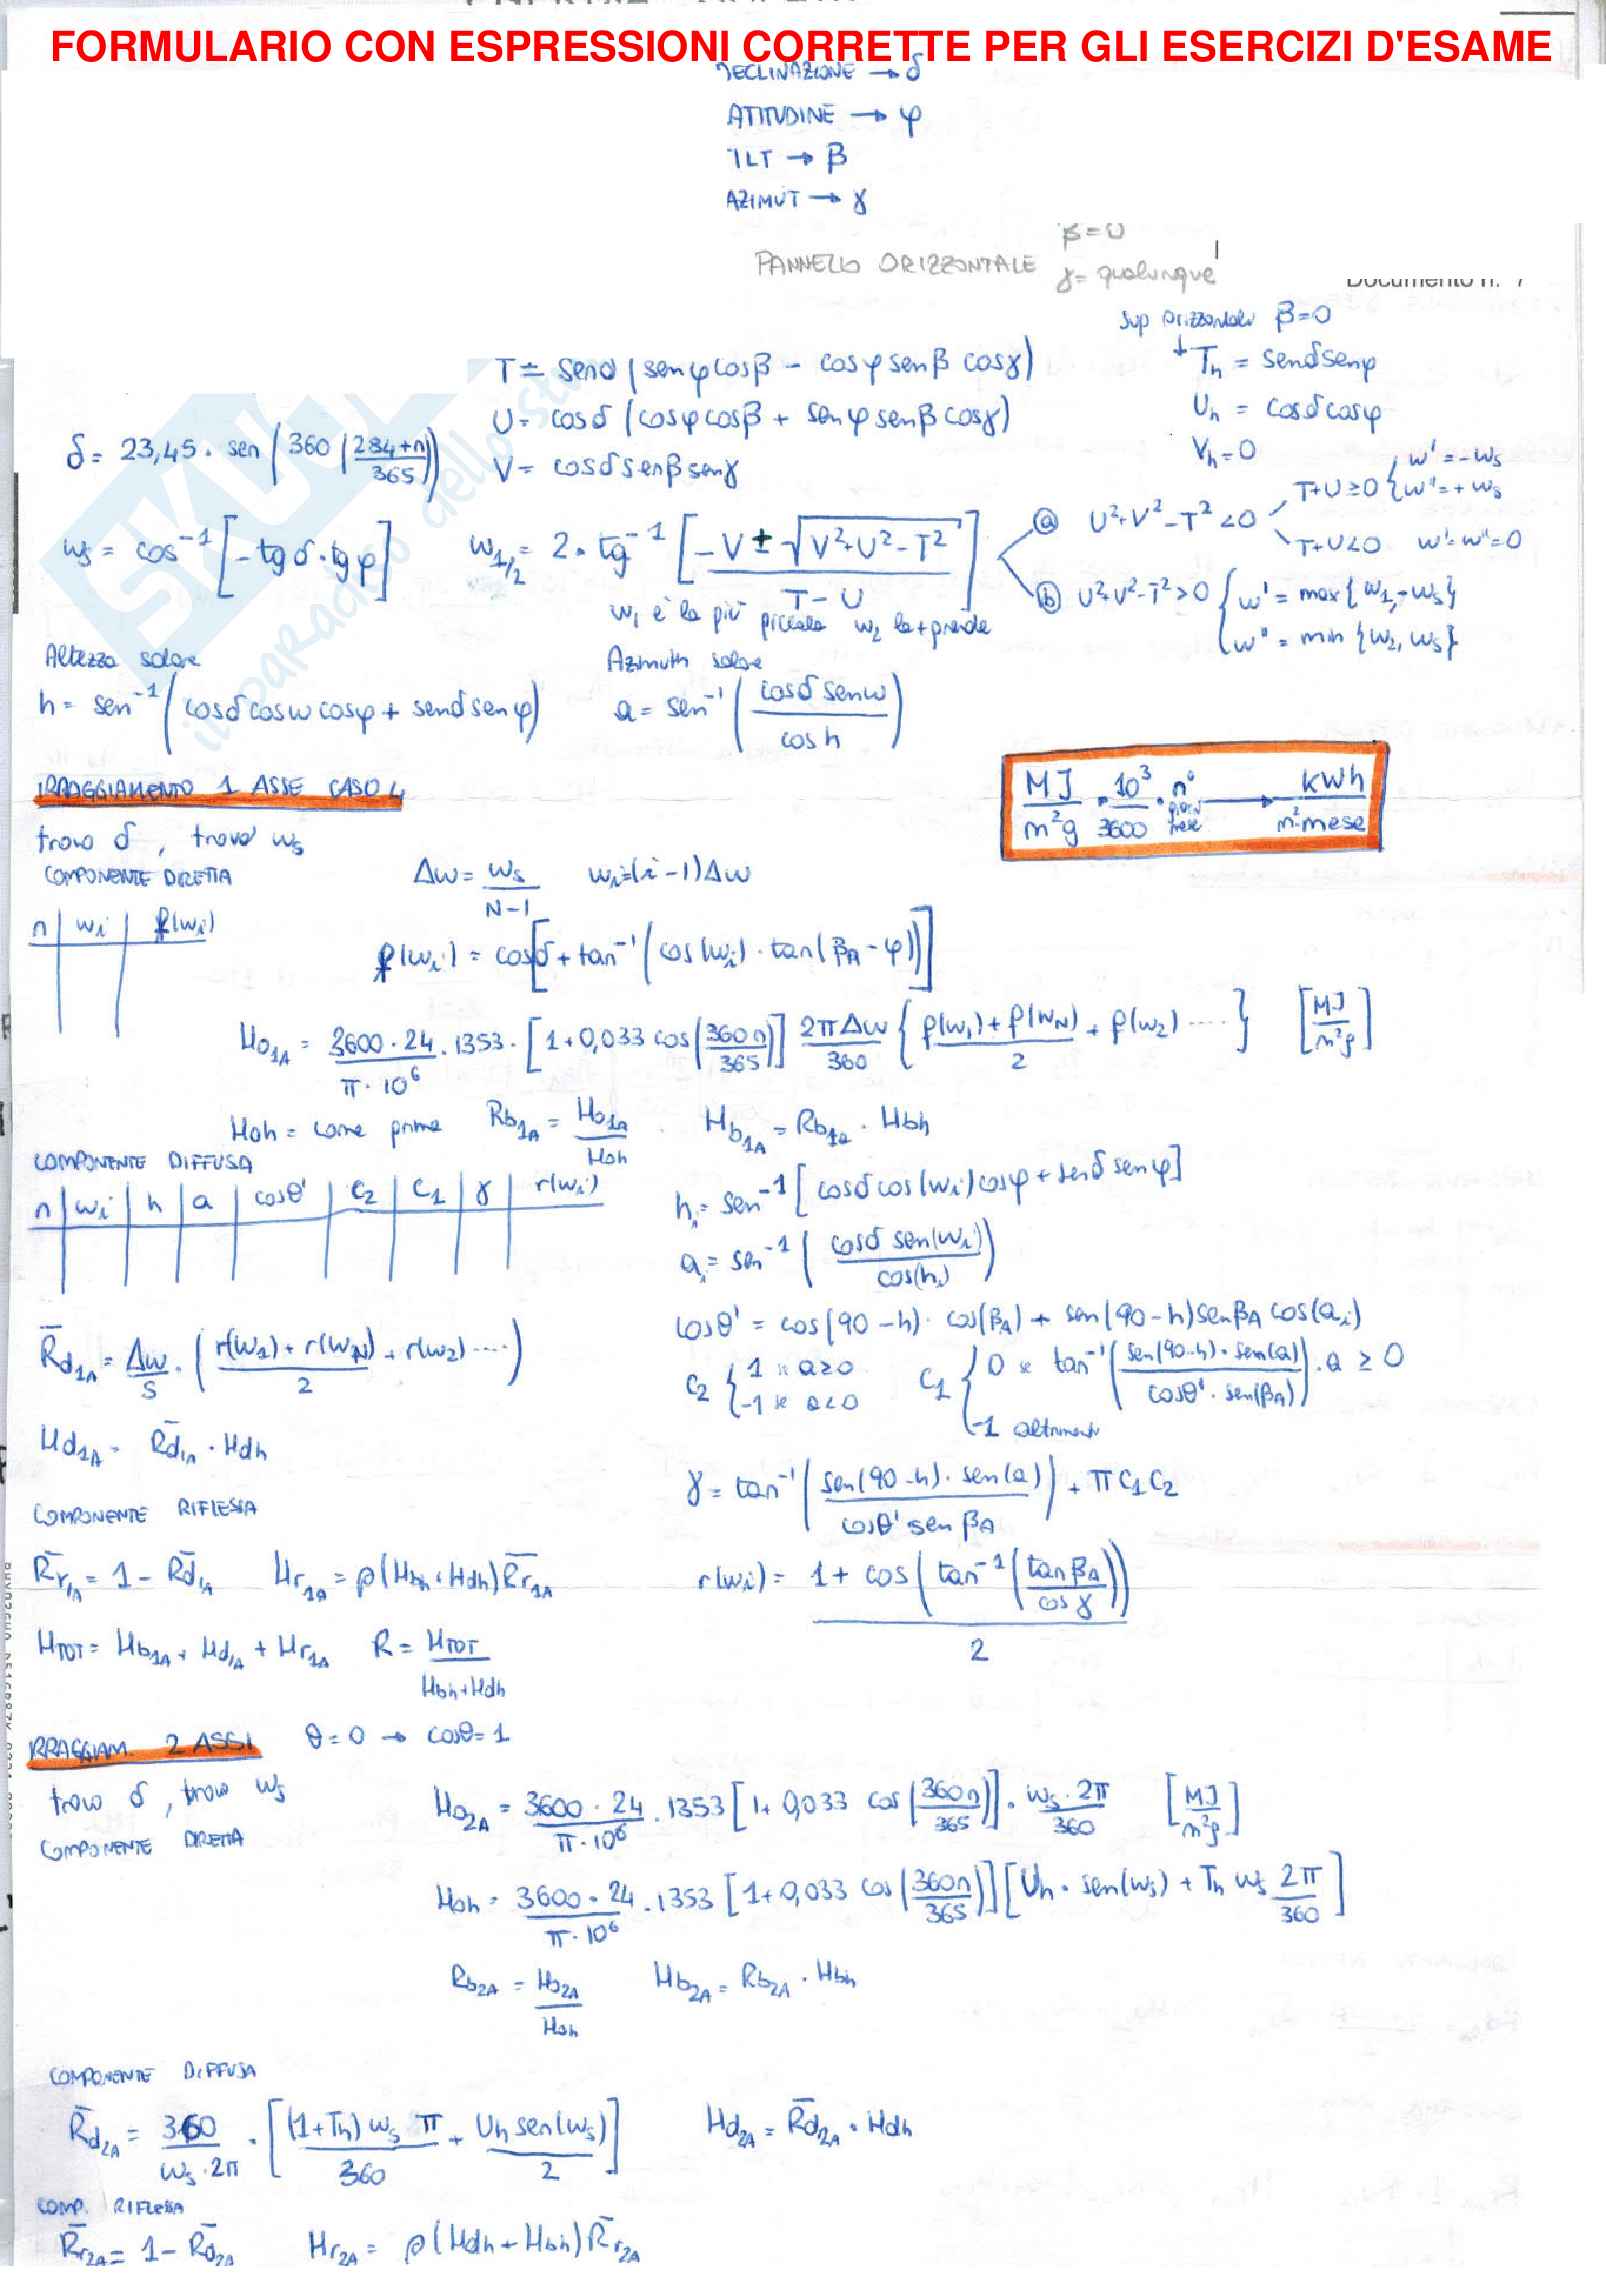 FORMULARIO CON ESPRESSIONI CORRETTE PER GLI ESERCIZI D'ESAME
DECLINAZIONE → δ
ATITUDINE → φ
TILT → β
AZIMUT → γ
PANNELLO ORIZZONTALE β=0
γ= qualunque
Documento n. 7
Sup orizzontale β=0
T = senδ (senφcosβ - cosφ senβ cosγ)
↓ Th = senδsenφ
U = cosδ (cosφcosβ + senφ senβ cosγ)
Uh = cosδcosφ
δ = 23,45 · sen (360 (284+n)/365)
V = cosδ senβ senγ
Vh = 0
ws = cos⁻¹ [-tgδ·tgφ]
w1/2 = 2·tg⁻¹ [(-V ± √(V²+U²-T²))/(T-U)]
ⓐ U²+V²-T² <0
T+U≥0 { w' = -ws w'' = +ws
T+U<0 w'=w''=0
ⓑ U²+V²-T²>0 { w' = max{w1,-ws} w'' = min {w2, ws}
w1 è la più piccola w2 la + grande
Altezza solare
h = sen⁻¹ (cosδcoswcosφ + senδsenφ)
Azimuth solare
a = sen⁻¹ (cosδ senw / cos h)
IRRAGGIAMENTO 1 ASSE CASO 4
MJ/m²g · 10³/3600 · n° giorni mese → kWh/m²mese
trovo δ, trovo ws
COMPONENTE DIRETTA
Δw = ws/(N-1) wi=(i-1)Δw
n | wi | f(wi)
f(wi) = cos[δ + tan⁻¹ (cos(wi) · tan(βA - φ))]
Ho1A = 3600·24/(π·10⁶) · 1353 · [1+0,033 cos(360n/365)] 2πΔw/360 { (f(w1)+f(wN))/2 + f(w2) .... } [MJ/m²g]
Hoh = come prima Rb1A = Ho1A/Hoh . Hb1A = Rb1A · Hbh
COMPONENTE DIFFUSA
n | wi | h | a | cosθ' | C2 | C1 | γ | r(wi)
hi = sen⁻¹ [cosδcos(wi)cosφ + senδ senφ]
ai = sen⁻¹ (cosδ sen(wi) / cos(hi))
cosθ' = cos(90-h) · cos(βA) + sen(90-h)senβA cos(ai)
R̄d1A = Δw/S · ((r(w1) + r(wN))/2 + r(w2) ....)
C2 { 1 se a≥0 -1 se a<0
C1 { 0 se tan⁻¹ (sen(90-h)·sen(a) / cosθ'·sen(βA)) · a ≥ 0
-1 altrimenti
Hd1A = R̄d1A · Hdh
γ = tan⁻¹ (sen(90-h)·sen(a) / cosθ' sen βA) + πC1C2
COMPONENTE RIFLESSA
R̄r1A = 1 - R̄d1A Hr1A = ρ(Hbh+Hdh)R̄r1A
r(wi) = (1 + cos (tan⁻¹ (tanβA / cosγ))) / 2
HTOT = Hb1A + Hd1A + Hr1A R = HTOT/(Hbh+Hdh)
IRRAGGIAM. 2 ASSI θ=0 → cosθ=1
trovo δ, trovo ws
COMPONENTE DIRETTA
Ho2A = 3600·24/(π·10⁶) · 1353 [1+ 0,033 cos (360n/365)] · ws·2π/360 [MJ/m²g]
Hoh = 3600·24/(π·10⁶) · 1353 [1+0,033 cos (360n/365)] [Uh · sen(ws) + Th ws 2π/360]
Rb2A = Ho2A/Hoh Hb2A = Rb2A · Hbh
COMPONENTE DIFFUSA
R̄d2A = 360/(ws·2π) · [(1+Th) ws π/360 + Uh sen(ws)/2] Hd2A = R̄d2A · Hdh
COMP. RIFLESSA
R̄r2A = 1 - R̄d2A Hr2A = ρ(Hdh+Hbh)R̄r2A